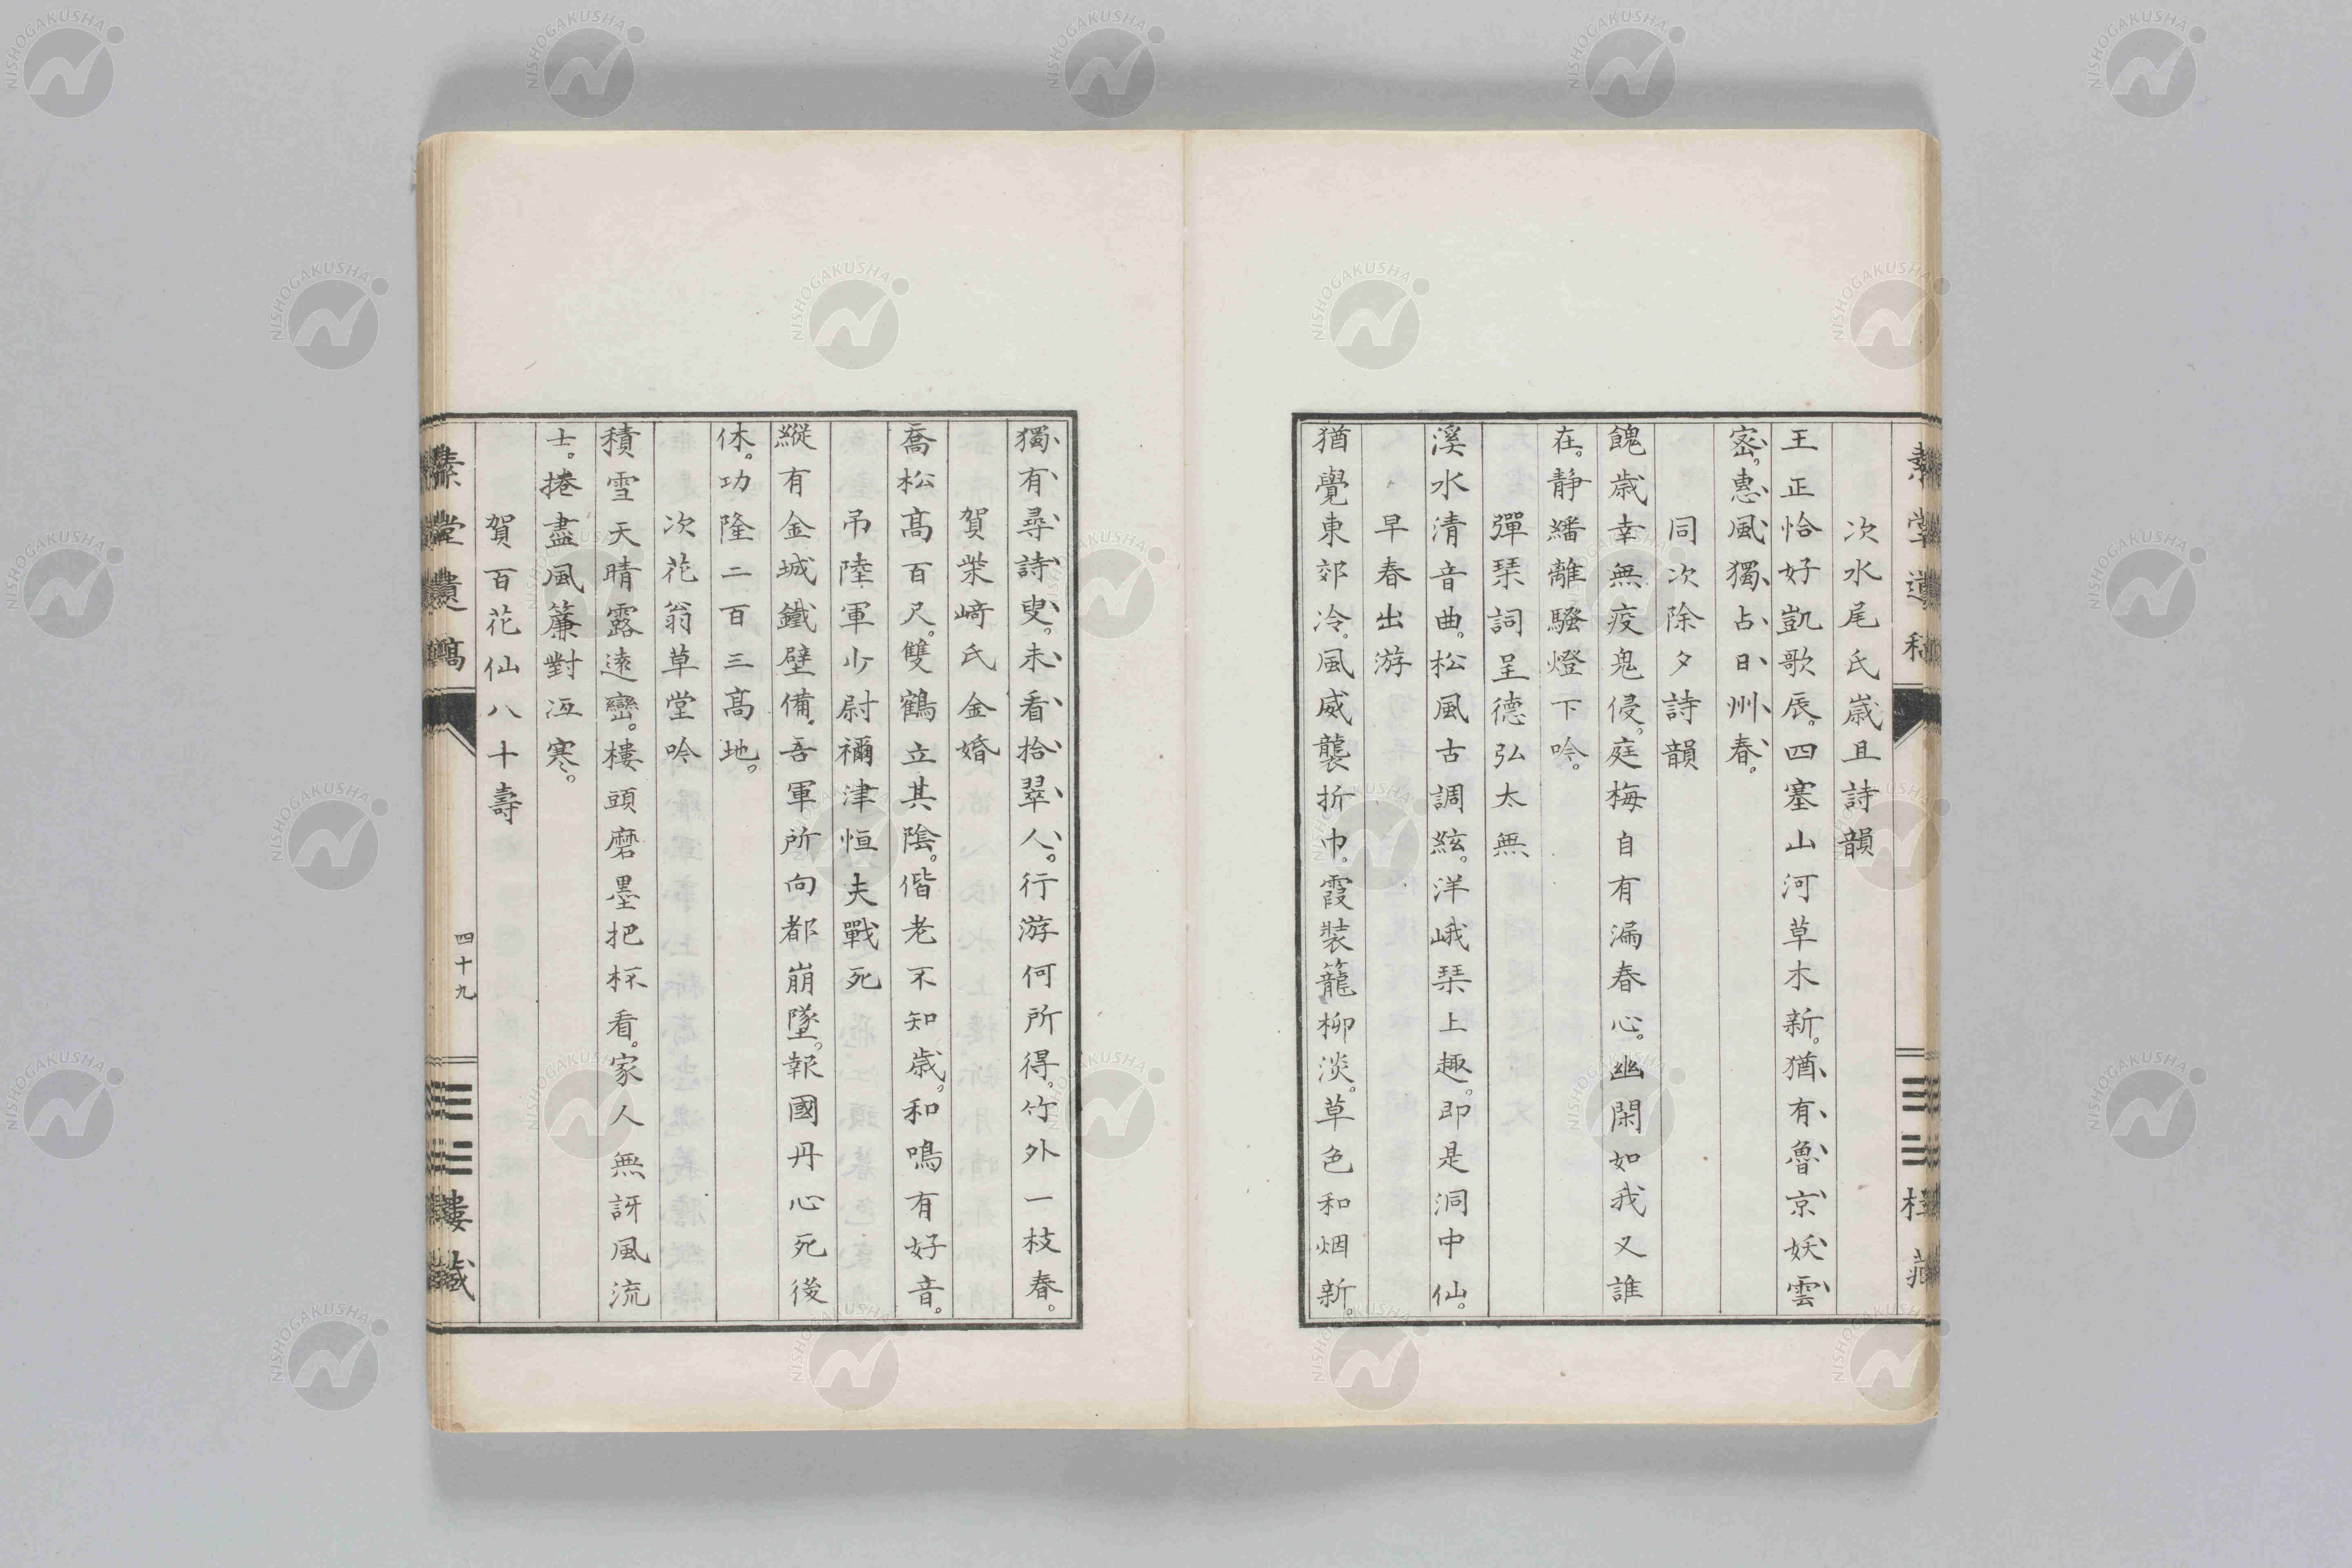 次水尾氏歳旦詩韻
王正恰好凱歌辰。四塞山河草木新。猶有魯京妖雲
密。惠風獨占日州春。
同次除夕詩韻
餽歳幸無疫鬼侵。庭梅自有漏春心。幽閑如我又誰
在。靜繙離騷燈下吟。
彈琹詞呈德弘太無
溪水清音曲。松風古調絃。洋峨琹上趣。即是洞中仙。
早春出游
猶覺東郊冷。風威襲折巾。霞裝籠柳淡。草色和烟新。
獨有尋詩叟。未看拾翠人。行游何所得。竹外一枝春。
賀柴﨑氏金婚
喬松高百尺。雙鶴立其陰。偕老不知歳。和鳴有好音。
吊陸軍少尉禰津恒夫戰死
縱有金城鐵壁備。吾軍所向都崩墜。報國丹心死後
休。功隆二百三高地。
次花翁草堂吟
積雪天晴露遠巒。樓頭磨墨把杯看。家人無訝風流
士。捲盡風簾對冱寒。
賀百花仙八十壽
素堂遺稿
四十九
三三樓藏
NISHOGAKUSHA